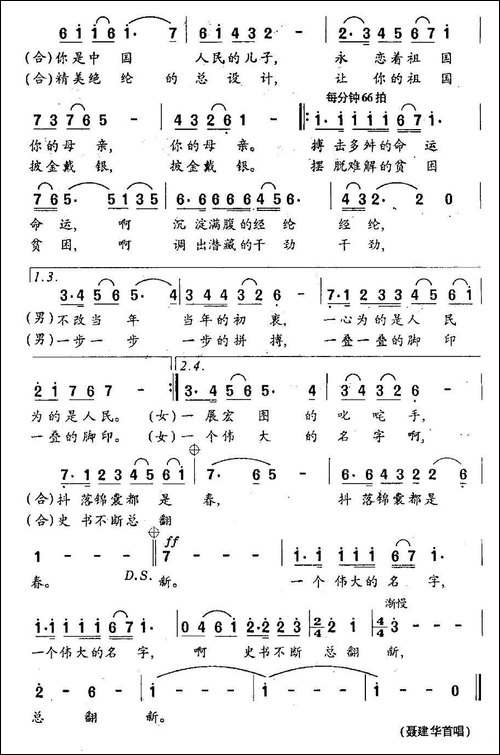 6 1 1 6 1· 7 6 1 4 3 2 2·3 4 5 6 7 1
(合)你是中国 人民的儿子, 永恋着祖国
(合)精美绝纶的总设计, 让你的祖国
每分钟66拍
7 3 7 6 5 4 3 2 6 1 ‖: 1·1 1 1 6 7 1·
你的母亲, 你的母亲。 搏击多舛的命运
披金戴银, 披金戴银。 摆脱难解的贫困
7 6 5 5· 5 1 3 5 6·6 6 6 6 4 5 6· 4 3 2· 2 0
命运,啊 沉淀满腹的经纶 经纶,
贫困,啊 调出潜藏的干劲 干劲,
1.3.
3·4 5 6 5· 4 3 4 4 3 2 6 7·1 2 3 4 5 6 1
(男)不改当年 当年的初衷, 一心为的是人民
(男)一步一步 一步的拼搏, 一叠一叠的脚印
2.4.
2 1 7 6 7 - :‖ 3·4 5 6 5· 4 3 4 4 3 2 6·
为的是人民。 (女)一展宏图的叱咤手,
一叠的脚印。 (女)一个伟大的名字啊,
7·1 2 3 4 5 6 1 7· 6 5 7·1 2 3 4 5 2 2 6
(合)抖落锦囊都是春, 抖落锦囊都是
(合)史书不断总翻
ff
1 - - - ‖ 7 - - - 1·1 1 1 6 7 1·
春。 D.S. 新。 一个伟大的名字,
渐慢
1·1 1 1 6 7 1· 0 4 6 1 2·2 2 3 2/4 2 1 4/4 3 - - -
一个伟大的名字, 啊 史书不断总翻新,
2 - 6 - 1 - - - 1 - - - 1 - - - ‖
总翻新。
(聂建华首唱)